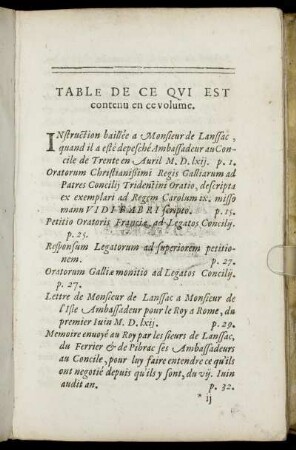 TABLE DE CE QVI EST
contenu en ce volume.
INstruction baillée a Monsieur de Lanssac,
quand il a esté depesché Ambassadeur au Con-
cile de Trente en Auril M. D. lxij. p. 1.
Oratorum Christianissimi Regis Galliarum ad
Patres Concilij Tridentini Oratio, descripta
ex exemplari ad Regem Carolum ix. misso
manu VIDI FABRI scripto. p. 15.
Petitio Oratoris Franciæ, ad Legatos Concilij.
p. 25.
Responsum Legatorum ad superiorem petitio-
nem. p. 27.
Oratorum Galliæ monitio ad Legatos Concilij.
p. 27.
Lettre de Monsieur de Lanssac a Monsieur de
l'Isle Ambassadeur pour le Roy a Rome, du
premier Iuin M. D. lxij. p. 29.
Memoire enuoyé au Roy par les sieurs de Lanssac,
du Ferrier & de Pibrac ses Ambassadeurs
au Concile, pour luy faire entendre ce qu'ils
ont negotié depuis qu'ils y sont, du vij. Iuin
audit an. p. 32.
* ij